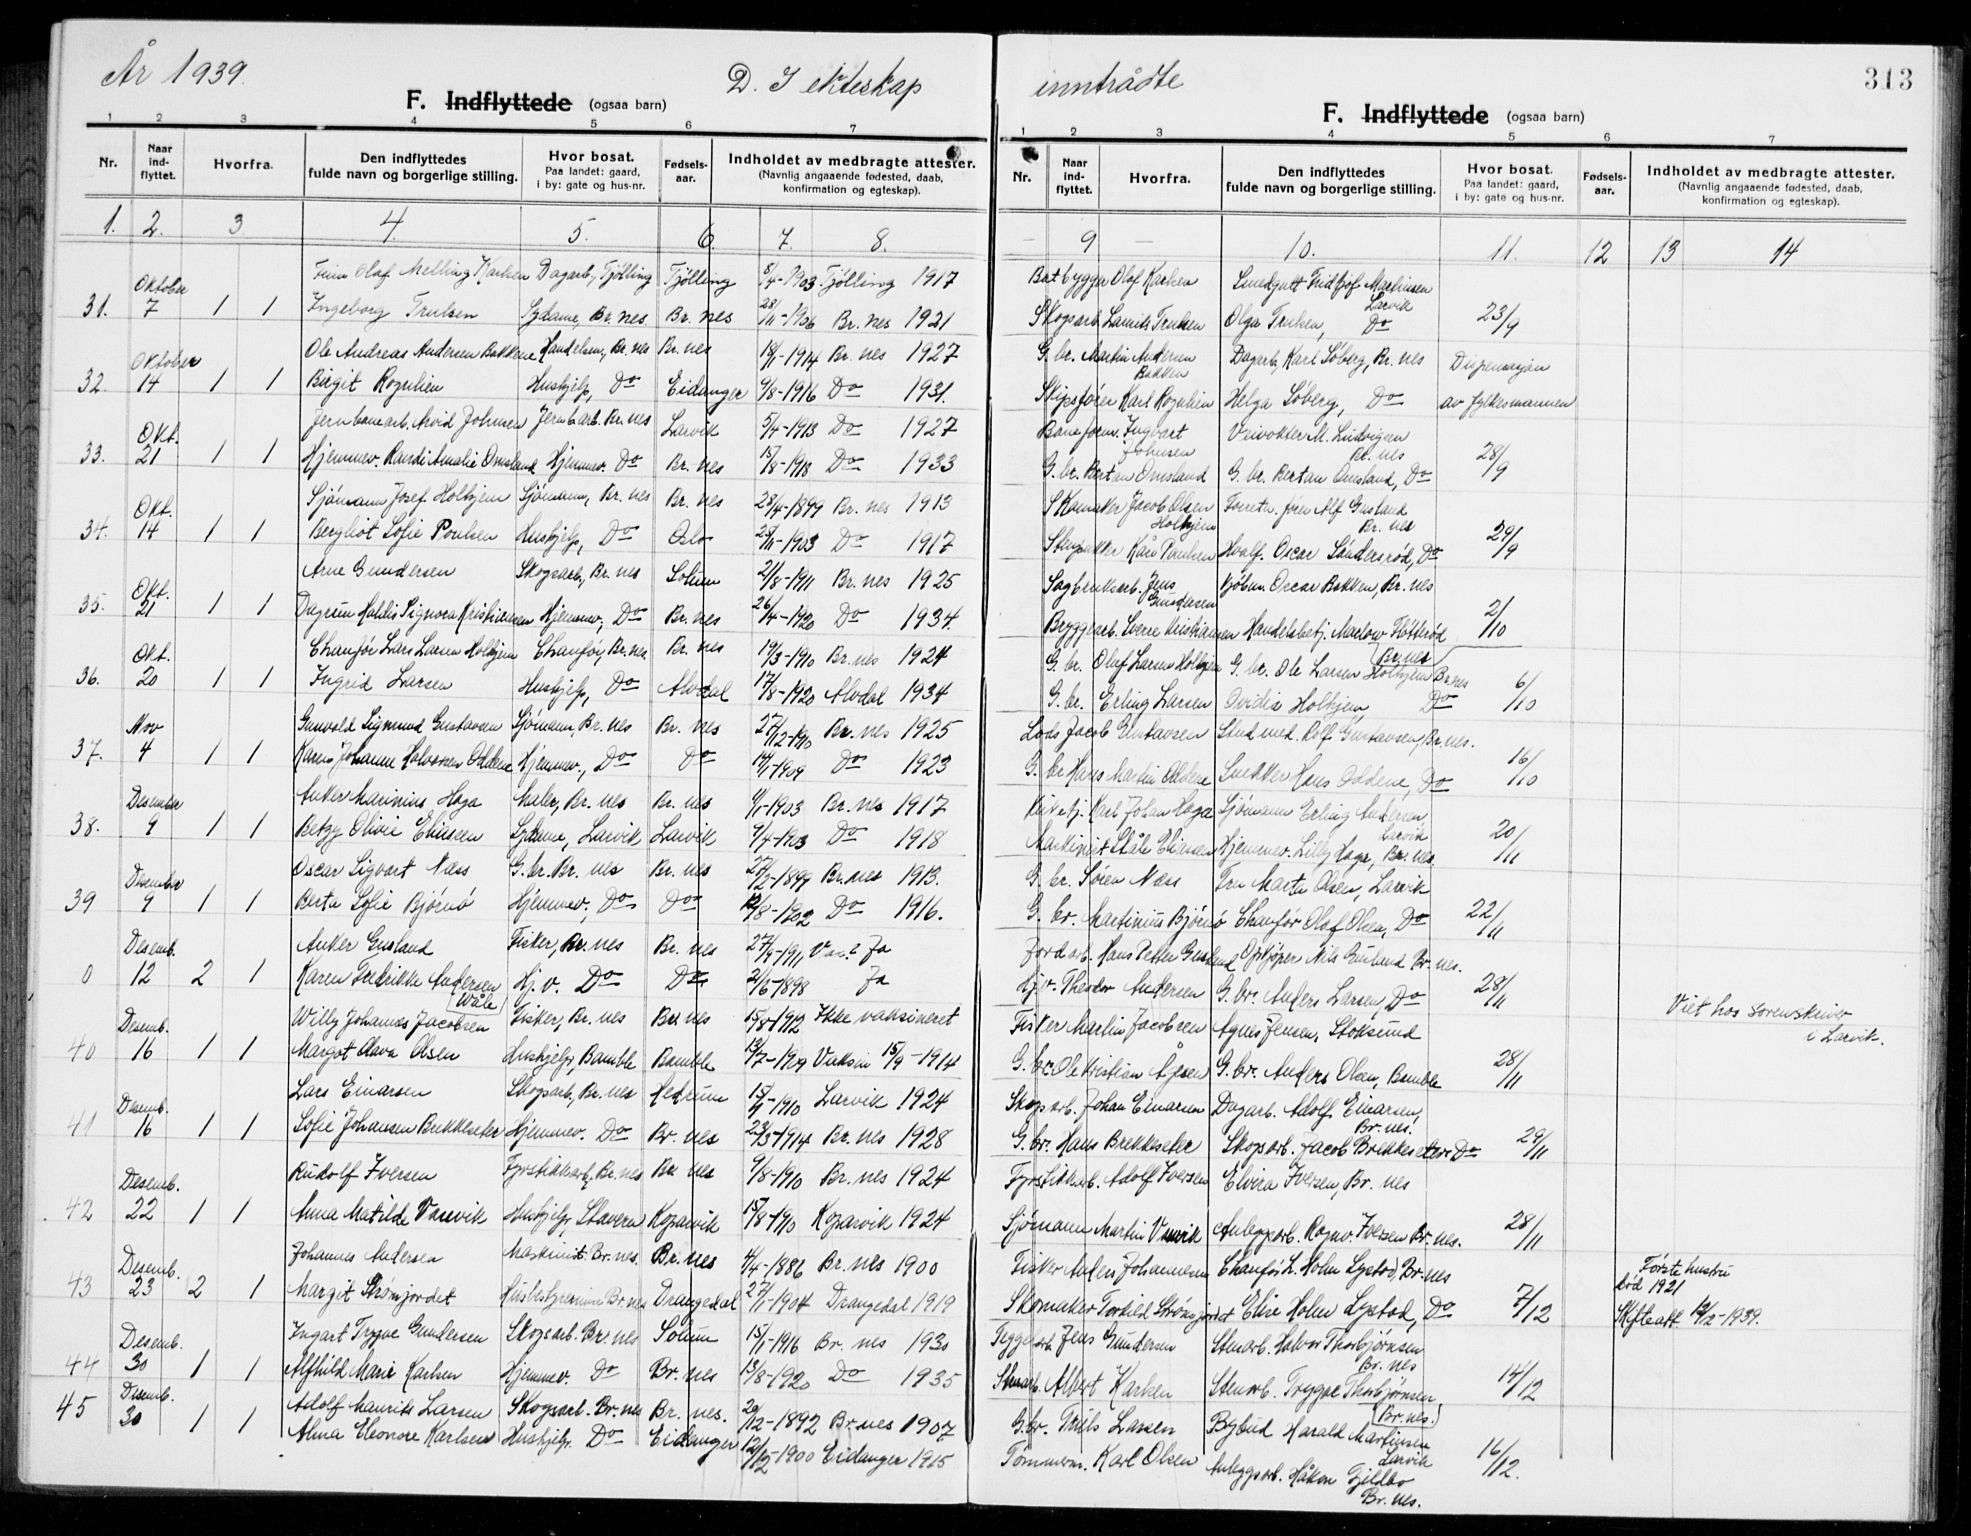 År 1939.
D. I ekteskap inntrådte
313
F. Indflyttede (ogsaa barn)
F. Indflyttede (ogsaa barn)
1 2 3 4 5 6 7
1 2 3 4 5 6 7
Nr. Naar ind-flyttet. Hvorfra. Den indflyttedes fulde navn og borgerlige stilling. Hvor bosat. Paa landet: gaard, i by: gate og hus-nr. Fødsels-aar. Indholdet av medbragte attester. (Navnlig angaaende fødested, daab, konfirmation og egteskap).
Nr. Naar ind-flyttet. Hvorfra. Den indflyttedes fulde navn og borgerlige stilling. Hvor bosat. Paa landet: gaard, i by: gate og hus-nr. Fødsels-aar. Indholdet av medbragte attester. (Navnlig angaaende fødested, daab, konfirmation og egteskap).
1. 2. 3 4. 5. 6. 7. 8.
9 10. 11. 12 13 14
Olaf Melling Karlsen Dagarb., Tjølling Tjølling 1903 Tjølling 1917
Båtbygger Olaf Karlsen Fridtjof Martinsen Larvik
31. Oktober 7 1 1 Ingeborg Trulsen Br.nes. Br. nes Br. nes 1921
Skogsarb. Laurits Trulsen Olga Trulsen, Do 23/9
Ole Andreas Andersen Bakkene Handelsm., Br. nes Br. nes 18/1-1914 Br. nes 1927
G. br. Martin Andersen Bakken Dagarb. Karl Søberg, Br. nes Dispensasjon
32. Oktober 14 1 1 Birgit Rognlien Hushjelp, Do Eidanger 9/8-1916 Do 1931.
Skipsfører Karl Rognlien Helga Søberg, Do av fylkesmannen
Jernbanearb. Arvid Johnsen Jernb.arb. Br. nes Larvik 5/4-1913 Do 1927
Baneform. Ingvart Johnsen M. Ludvigsen Br. nes
33. Okt. 21 1 1 Hjemmev. Randi Amalie Omsland Hjemmev. Do Br. nes 15/8-1913 Do 1933
G. br. Bertan Omsland G. br. Bertan Omsland, Do 28/9
Sjømann Josef Holtjem Sjømann, Br. nes Br. nes 28/4-1899 Br. nes 1913
Skomaker Jacob Olsen Holtjem Alf Gusland Br. nes
34. Okt. 14 1 1 Bergliot Sofie Poulsen Hushjelp, Do Oslo 25/11-1903 Do 1917
Kåre Poulsen Hvalf. Oscar Søndersrød, Do 29/9
Arne Gundersen Skogsarb., Br. nes Solum 21/8-1911 Br. nes 1925
Sagbruksarb. Jens Gundersen Kjøbm. Oscar Bakken, Br. nes
35. Okt. 21 1 1 Dagrun Haldis Signora Kristiansen Hjemmev., Do Br. nes 26/4-1920 Do 1934.
Bryggearb. Sverre Kristiansen Handelsbetj. Br.nes 2/10
Chaufør Lars Larsen Holtjem Chaufør, Br.nes. Br. nes 19/3-1910 Br. nes 1924
G. br. Olaf Larsen Holtjem G. br. Ole Larsen Holtjem Br.nes
36. Okt. 20 1 1 Ingrid Larsen Hushjelp, Do Alvdal 17/8-1920 Alvdal 1934
G. br. Erling Larsen Holtjem Do 6/10
Gunvald Sigmund Gustavsen Sjømann, Br. nes Br. nes 27/12-1910 Br. nes 1925
Lods Jacob Gustavsen Stud med. Rolf Gustavsen, Br.nes.
37. Nov 4 1 1 Karen Johanne Halvorsen Oddene Hjemmev., Do Do 14/1-1909 Do 1923
G. br Hans Martin Oddene Snekker Hans Oddene, Do 16/10
Anker Marinius Haga Maler, Br. nes Br. nes 1903 Br. nes 1917
Karl Johan Haga Sjømann Erling Andersen Larvik
38. Desember 9 1 1 Betzy Olivie Eliasen Larvik Larvik 9/7-1903 Do 1918
Maskinist Ståle Eliasen Hjemmev. Lilly Haga, Br. nes. 20/11
Oscar Sigvart Næss G. br. Br. nes Br. nes 27/2-1899 Br. nes 1913.
G. br. Søren Næss Fru Marta Olsen, Larvik
39 Desember 9 1 1 Berta Sofie Bjørnø Hjemmev., Do Do 12/8-1902 Do 1916.
G. br. Martinius Bjørnø Chaufør Olaf Olsen, Do 22/11
Anker Gusland Fisker, Br. nes Br. nes 27/9-1911 Ja
Jordarb. Hans Petter Gusland Opkjøper Nils Gusland Br. nes.
0 Desemb. 12 2 1 Karen Fredrikke Andersen Wåle Hj. v. Do Do 2/6-1898 Ja
Theodor Andersen G. br. Anders Larsen, Do 28/11
Viet hos sorenskriver i Larvik.
Willy Johannes Jacobsen Fisker, Br. nes Br. nes 15/8-1912 Ikke vaksineret
Fisker Martin Jacobsen Agnes Jensen, Stoksund
40 Desemb. 16 1 1 Margot Olava Olsen Hushjelp, Bamble Bamble 13/7-1909 Vaksin 15/9-1914
G. br. Ole Kristian Ågesen G. br. Anders Olsen, Bamble 28/11
Lars Einarsen Skogsarb., Br. nes Hedrum 15/9-1910 Larvik 1924
Skogsarb. Johan Einarsen Dagarb. Adolf Einarsen, Br. nes.
41 Desemb. 16 1 1 Sofie Johansen Brekkeseter Hjemmev. Do Br. nes 23/3-1914 Br. nes 1928
G. br. Hans Brekkeseter Skogsarb. Jacob Brekkeseter Do 29/11
Rudolf Iversen Fyrstikkarb. Br. nes Br. nes 9/8-1910 Br. nes 1924
Fyrstikkarb. Adolf Iversen Elvira Iversen, Br. nes
42 Desemb. 22 1 1 Anna Matilde Vassvik Hushjelp, Stavern Kopavik 15/8-1910 Kopavik 1924
Sjømann Martin Vassvik Anleggsarb. Ragnv. Iversen Br. nes. 28/11
Johannes Andersen Maskinist Br. nes. Br. nes 4/4-1886 Br. nes 1900
Fisker Anders Johannesen Chaufør L. Holm Lystad, Br. nes
Første hustru død 1921
43 Desemb. 23 2 1 Margit Strømjordet Husbestyrerinne Br. nes Drangedal 27/1-1904 Drangedal 1919
Skomaker Torkild Strømjordet Elise Holm Lystad, Do 7/12
Skifteatt 12/2-1939.
Ingart Trygve Gundersen Skogsarb. Br. nes Solum 15/1-1916 Br. nes 1930
Jens Gundersen Stenarb. Halvor Thorbjørnsen Br. nes
44 Desemb. 30 1 1 Alfhild Marie Karlsen Hjemmev. Do Br. nes 13/8-1920 Do 1935
Stenarb. Albert Karlsen Stenarb. Trygve Thorbjørnsen, Br. nes. 14/12
45 Desemb. 30 1 1 Adolf Maurits Larsen Skogsarb. Br. nes Br. nes. 29/12-1892 Br. nes 1907
G. br. Truls Larsen Bybud Harald Martinsen Larvik
Alma Eleonore Karlsen Hushjelp. Do Eidanger 12/12-1900 Eidanger 1915
Tømmerm. Karl Olsen Anleggsarb. Håkon Fjeldbo Br. nes. 16/12.